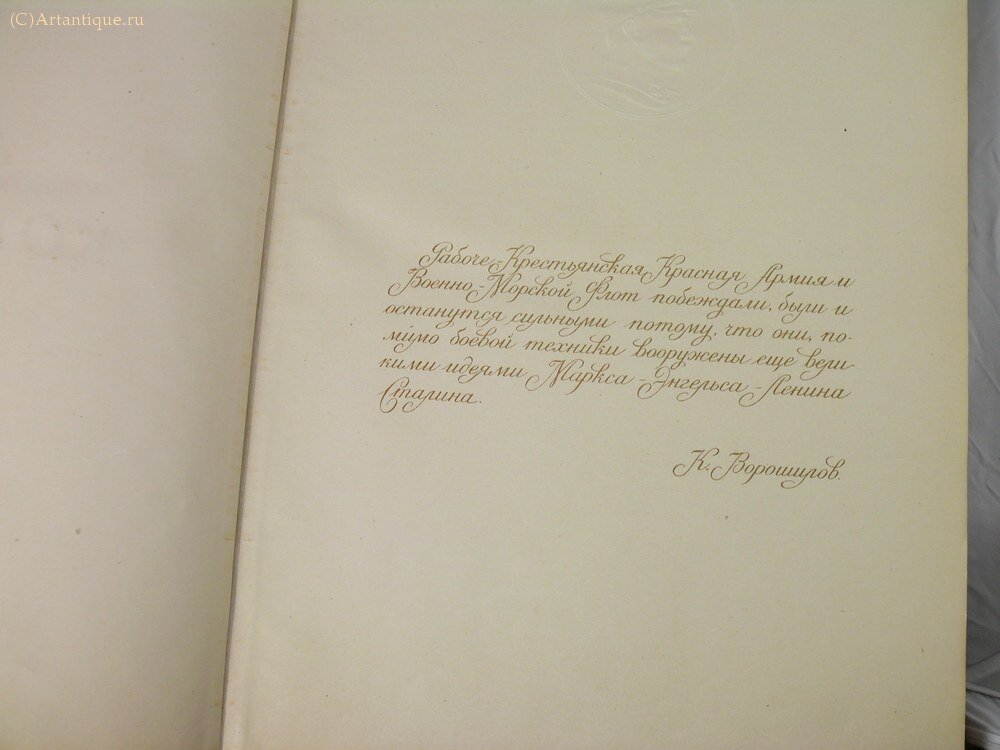 (C)Artantique.ru
Рабоче-Крестьянская Красная Армия и
Военно-Морской Флот побеждали, были и
останутся сильными потому, что они, по-
мимо боевой техники вооружены еще вели-
кими идеями Маркса-Энгельса-Ленина
Сталина.
К. Ворошилов.